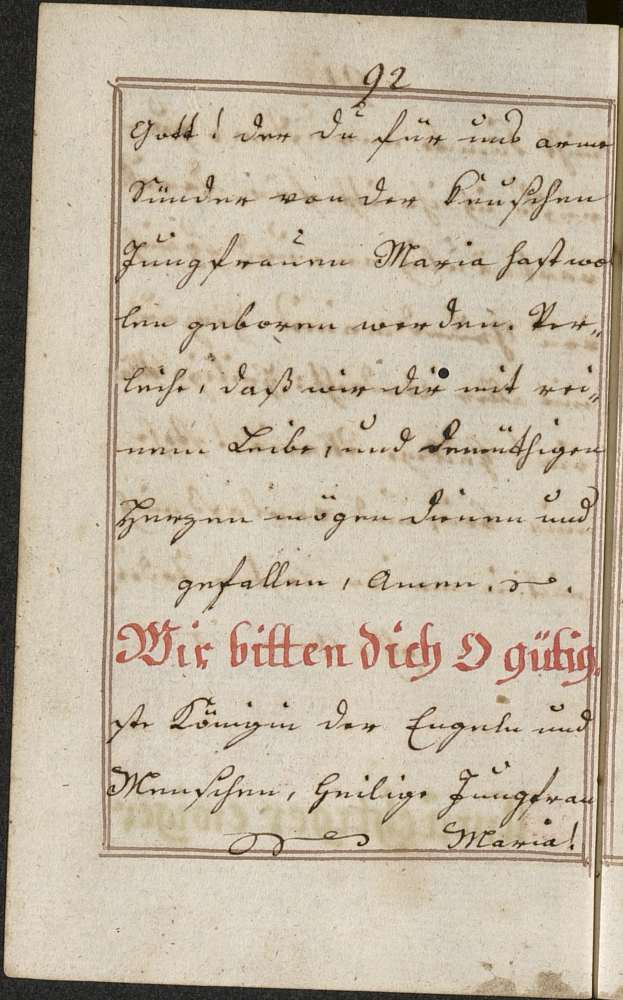 92
Gott! der du für uns arme
Sünder von der keuschen
Jungfrauen Maria hast wo
len geboren werden. Ver„
leihe, daß wir dir mit rei„
nem Leibe, und demüthigen
Herzen mögen dienen und
gefallen, Amen.
Wir bitten dich O gütig„
ste Königin der Engeln und
Menschen, heilige Jungfrau
Maria!